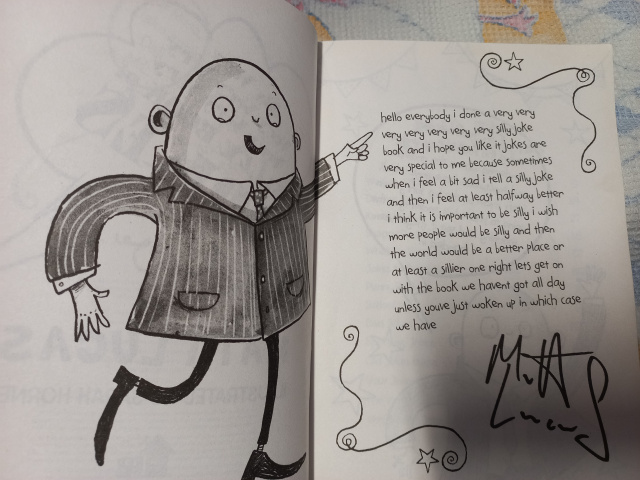 hello everybody i done a very very
very very very very very silly joke
book and i hope you like it jokes are
very special to me because sometimes
when i feel a bit sad i tell a silly joke
and then i feel at least halfway better
i think it is important to be silly i wish
more people would be silly and then
the world would be a better place or
at least a sillier one right lets get on
with the book we havent got all day
unless youve just woken up in which case
we have
Matt
Lucas